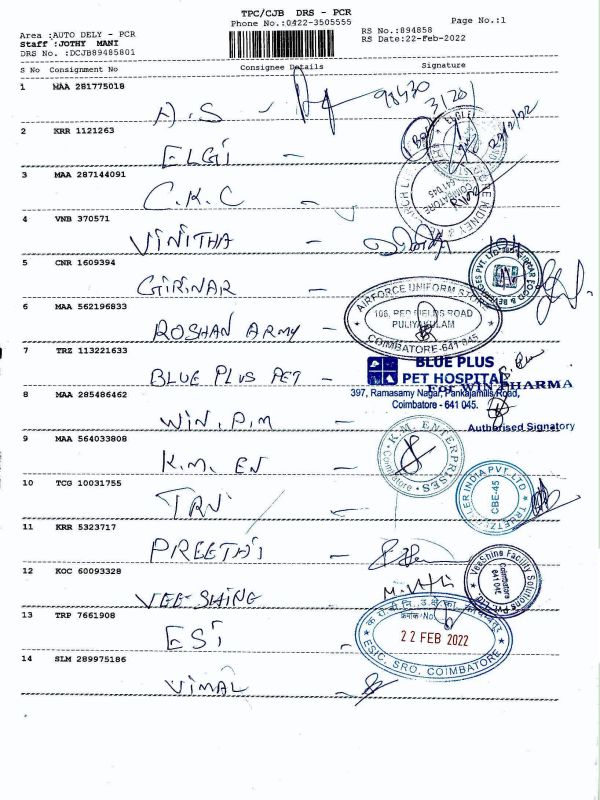 TPC/CJB DRS - PCR
Phone No.:0422-3505555
Page No.:1
Area :AUTO DELY - PCR
Staff :JOTHY MANI
DRS No. :DCJB89485801
RS No.:894858
RS Date:22-Feb-2022
S No Consignment No Consignee Details Signature
1 MAA 281775018
A.S - 98430
31201
2 KRR 1121263
ELGI -
22/2/22
3 MAA 287144091
C.K.C -
COIMBATORE
641 045
4 VNB 370571
VINITHA -
5 CNR 1609394
GIRINAR -
6 MAA 562196833
ROSHAN ARMY -
AIRFORCE UNIFORM STORE
106, RED FIELDS ROAD
PULIYAKULAM
COIMBATORE-641 045
7 TRZ 113221633
BLUE PLUS PET -
BLUE PLUS
PET HOSPITAL
For WIN PHARMA
397, Ramasamy Nagar, Pankajamills Road,
Coimbatore - 641 045.
8 MAA 285486462
WIN.P.M -
Authorised Signatory
9 MAA 564033808
K.M. EN -
K.M. ENTERPRISES
Coimbatore
10 TCG 10031755
TRN
TRUETZSCHLER INDIA PVT LTD
CBE-45
11 KRR 5323717
PREETHI -
12 KOC 60093328
VEE-SHINE
VeeShine Facility Solutions Pvt. Ltd.
Coimbatore
641 045
13 TRP 7661908
ESI -
22 FEB 2022
ESIC, SRO, COIMBATORE
14 SLM 289975186
VIMAL -